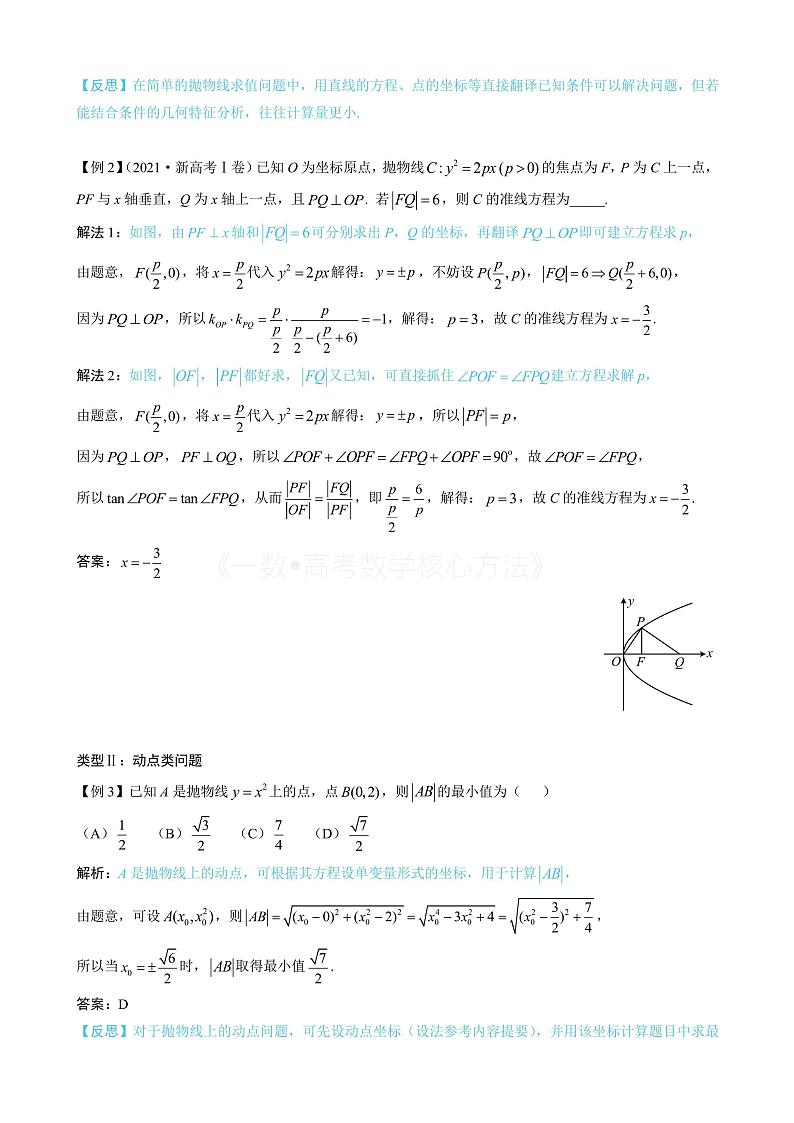 【反思】在简单的抛物线求值问题中，用直线的方程、点的坐标等直接翻译已知条件可以解决问题，但若
能结合条件的几何特征分析，往往计算量更小.
【例 2】（2021·新高考Ⅰ卷）已知 O 为坐标原点，抛物线 $C: y^2=2px(p>0)$ 的焦点为 F，P 为 C 上一点，
PF 与 x 轴垂直，Q 为 x 轴上一点，且 $PQ\perp OP$．若 $|FQ|=6$，则 C 的准线方程为_____．
解法 1：如图，由 $PF\perp x$ 轴和 $|FQ|=6$ 可分别求出 P，Q 的坐标，再翻译 $PQ\perp OP$ 即可建立方程求 p，
由题意，$F(\frac{p}{2},0)$，将 $x=\frac{p}{2}$ 代入 $y^2=2px$ 解得：$y=\pm p$，不妨设 $P(\frac{p}{2},p)$，$|FQ|=6\Rightarrow Q(\frac{p}{2}+6,0)$，
因为 $PQ\perp OP$，所以 $k_{OP}\cdot k_{PQ}=\frac{p}{\frac{p}{2}}\cdot\frac{p}{\frac{p}{2}-(\frac{p}{2}+6)}=-1$，解得：$p=3$，故 C 的准线方程为 $x=-\frac{3}{2}$．
解法 2：如图，$|OF|$，$|PF|$ 都好求，$|FQ|$ 又已知，可直接抓住 $\angle POF=\angle FPQ$ 建立方程求解 p，
由题意，$F(\frac{p}{2},0)$，将 $x=\frac{p}{2}$ 代入 $y^2=2px$ 解得：$y=\pm p$，所以 $|PF|=p$，
因为 $PQ\perp OP$，$PF\perp OQ$，所以 $\angle POF+\angle OPF=\angle FPQ+\angle OPF=90°$，故 $\angle POF=\angle FPQ$，
所以 $\tan\angle POF=\tan\angle FPQ$，从而 $\frac{|PF|}{|OF|}=\frac{|FQ|}{|PF|}$，即 $\frac{p}{\frac{p}{2}}=\frac{6}{p}$，解得：$p=3$，故 C 的准线方程为 $x=-\frac{3}{2}$．
答案：$x=-\frac{3}{2}$
《一数•高考数学核心方法》
y
P
O F Q x
类型Ⅱ：动点类问题
【例 3】已知 A 是抛物线 $y=x^2$ 上的点，点 $B(0,2)$，则 $|AB|$ 的最小值为（ ）
（A）$\frac{1}{2}$ （B）$\frac{\sqrt{3}}{2}$ （C）$\frac{7}{4}$ （D）$\frac{\sqrt{7}}{2}$
解析：A 是抛物线上的动点，可根据其方程设单变量形式的坐标，用于计算 $|AB|$，
由题意，可设 $A(x_0,x_0^2)$，则 $|AB|=\sqrt{(x_0-0)^2+(x_0^2-2)^2}=\sqrt{x_0^4-3x_0^2+4}=\sqrt{(x_0^2-\frac{3}{2})^2+\frac{7}{4}}$，
所以当 $x_0=\pm\frac{\sqrt{6}}{2}$ 时，$|AB|$ 取得最小值 $\frac{\sqrt{7}}{2}$．
答案：D
【反思】对于抛物线上的动点问题，可先设动点坐标（设法参考内容提要），并用该坐标计算题目中求最